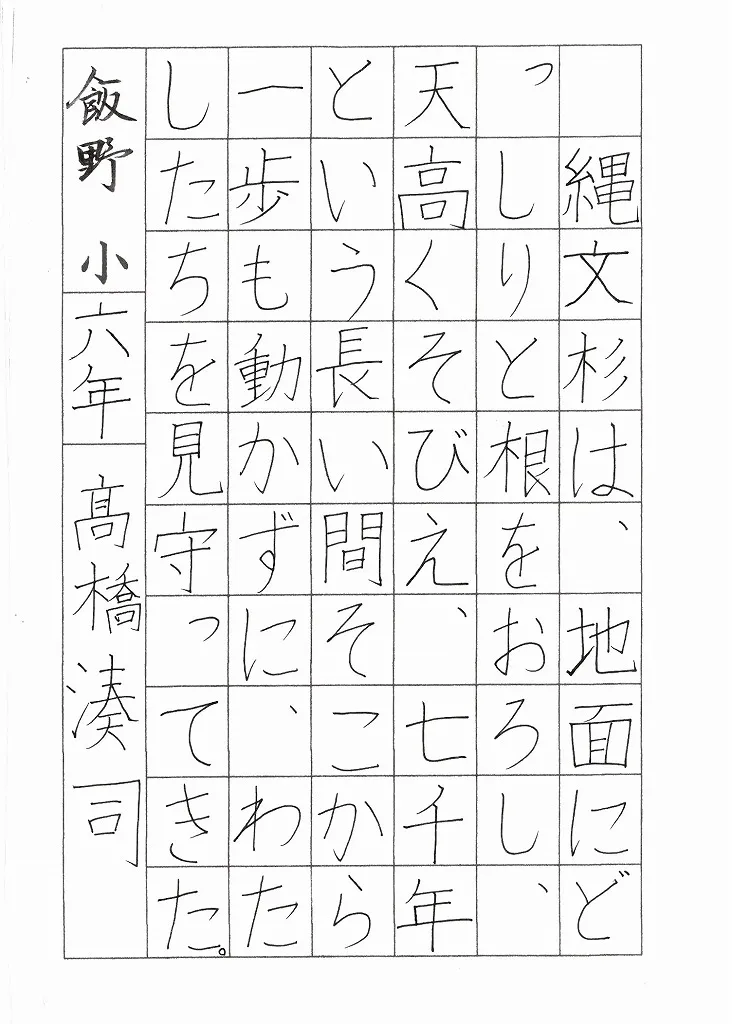 縄文杉は、地面にど
っしりと根をおろし、
天高くそびえ、七千年
という長い間そこから
一歩もかずに、わたた
したちを見守ってきた。
飯野小六年髙橋湊司